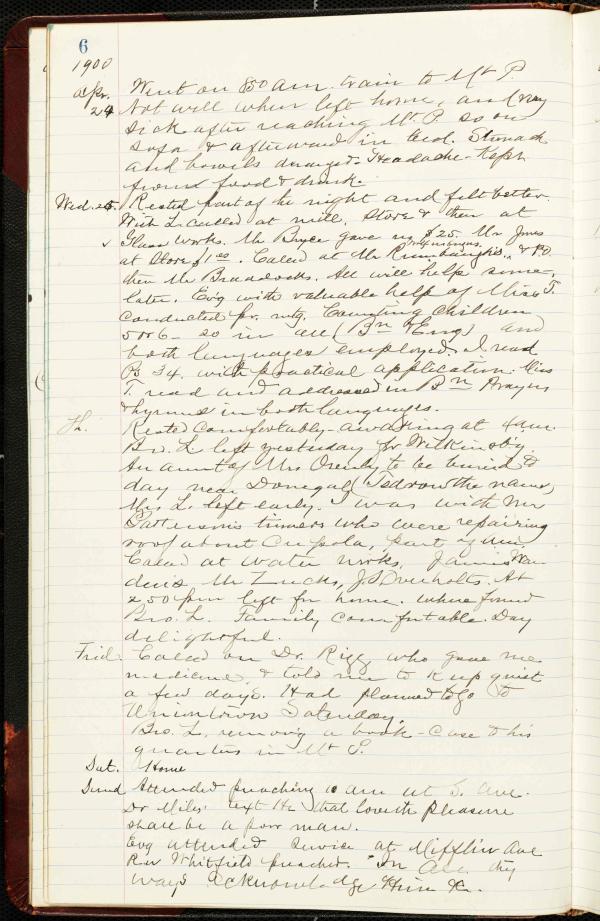 6
1900
Apr. 24 Went on 850 am train to Mt P.
Not well when left home, and very
sick after reaching Mt. P. so on
sofa & afterward in bed. Stomach
and bowels deranged. Headache. Kept
from food & drink.
Wed. 25. Rested part of the night and felt better.
With L. called at mill, store & then at
Glass Works. Mr Bryce gave us $25. Mr Jones
at Store $1.00. Called at Mr Rumbaugh's, & PO.
then Mr Braddocks. All will help some,
later. Evg with valuable help of Miss T.
conducted pr. mtg. Counting children
5 or 6 so in all (Bn & Eng) and
both languages employed. I read
Ps 34. with practical application. Miss
T. read and addressed in Bn Prayers
& hymns in both languages.
Th. Rested comfortably - awaking at 4 am.
Bro. L. left yesterday for Wilkinsb'g.
An aunt of Mrs to be buried to
day near Donegal (Tedrow the name)
Mrs L. left early. I was with Mr
Patterson's tinners who were repairing
roof about Cupola, part of
Called at Water Works,
Mr Zucks, J.S. Overholts. At
250 pm left for home. where found
Bro. L. Family comfortable. Day
delightful.
Frid. Called on Dr. Rigg who gave me
medicine & told me to keep quiet
a few days. Had planned to go to
Uniontown Saturday.
Bro. L. removing a book-case to his
quarters in Mt P.
Sat. Home
Sund Attended preaching 10 am at S. Ave.
Dr Miles' text He that loveth pleasure
shall be a poor man.
Evg attended service at Mifflin Ave
Rev Whitfield preached. "In all thy
ways acknowledge Him &c.